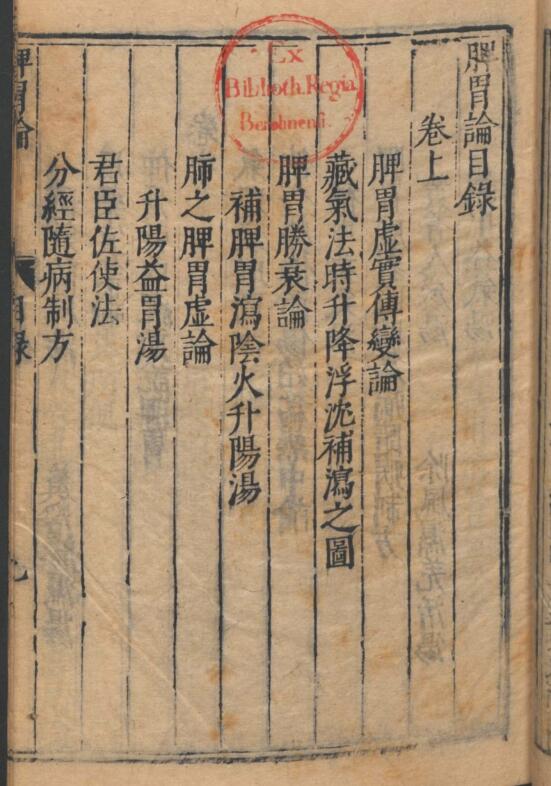 脾胃論目錄
卷上
脾胃虛實傳變論
藏氣法時升降浮沈補瀉之圖
脾胃勝衰論
補脾胃瀉陰火升陽湯
肺之脾胃虛論
升陽益胃湯
君臣佐使法
分經隨病制方
脾胃論
目錄
Ex
Biblioth. Regia
Berolinensi.